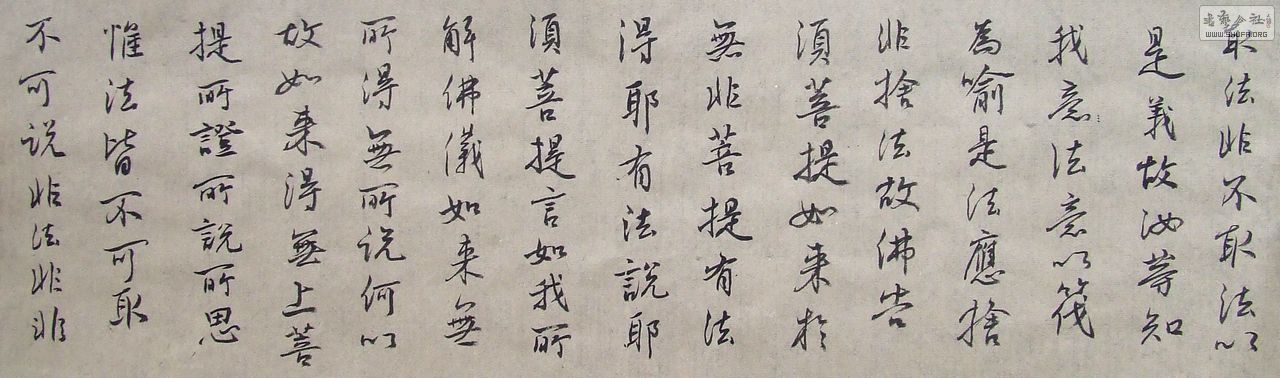 取法非不取法以
是義故汝等知
我意法意以筏
為喻是法應捨
非捨法故佛告
須菩提如来於
無非菩提有法
得耶有法說耶
須菩提言如我所
解佛儀如来無
所得無所说何以
故如来得無上菩
提所證所說所思
惟法皆不可取
不可说非法非非
书艺公社
WWW.SHUFA.ORG